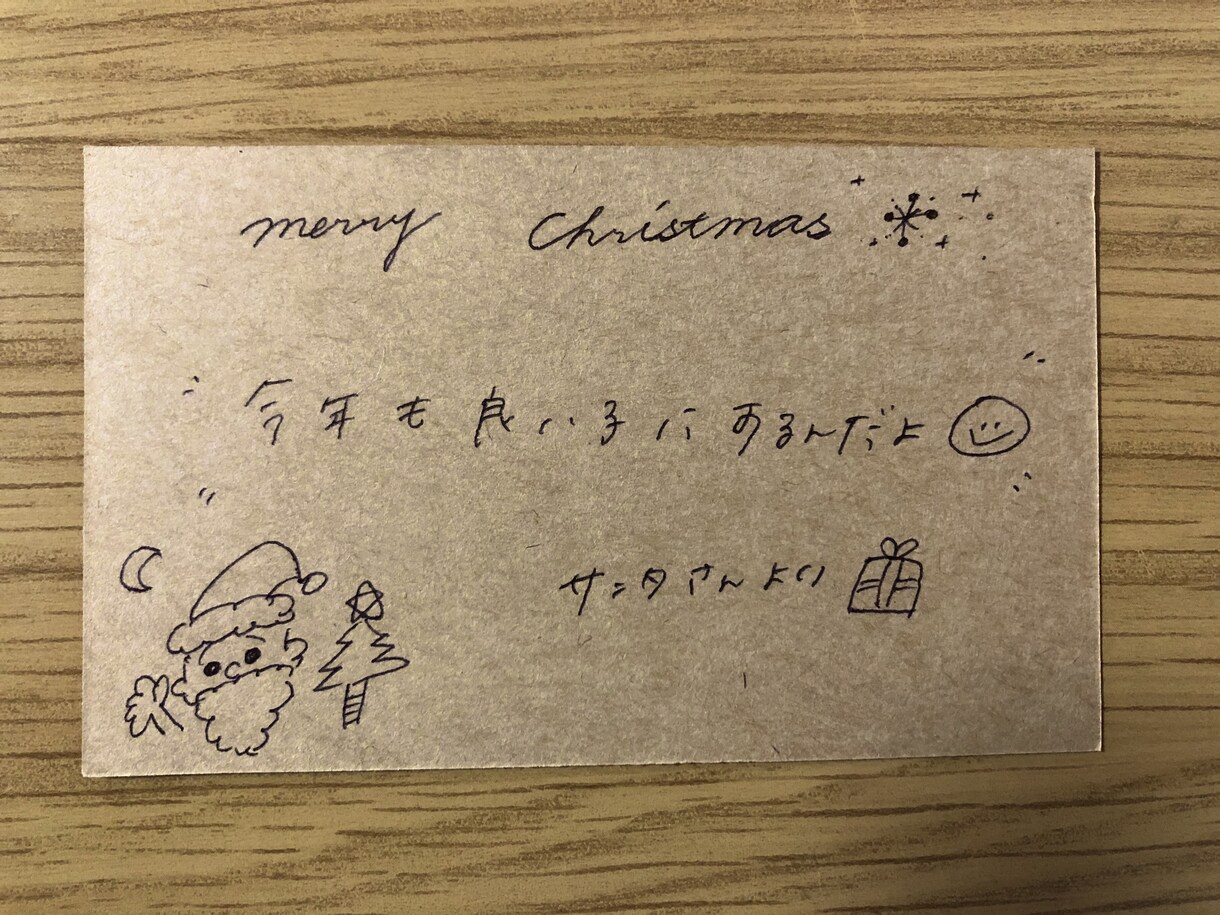 merry Christmas
今年も良い子にするんだよ
サンタさんより